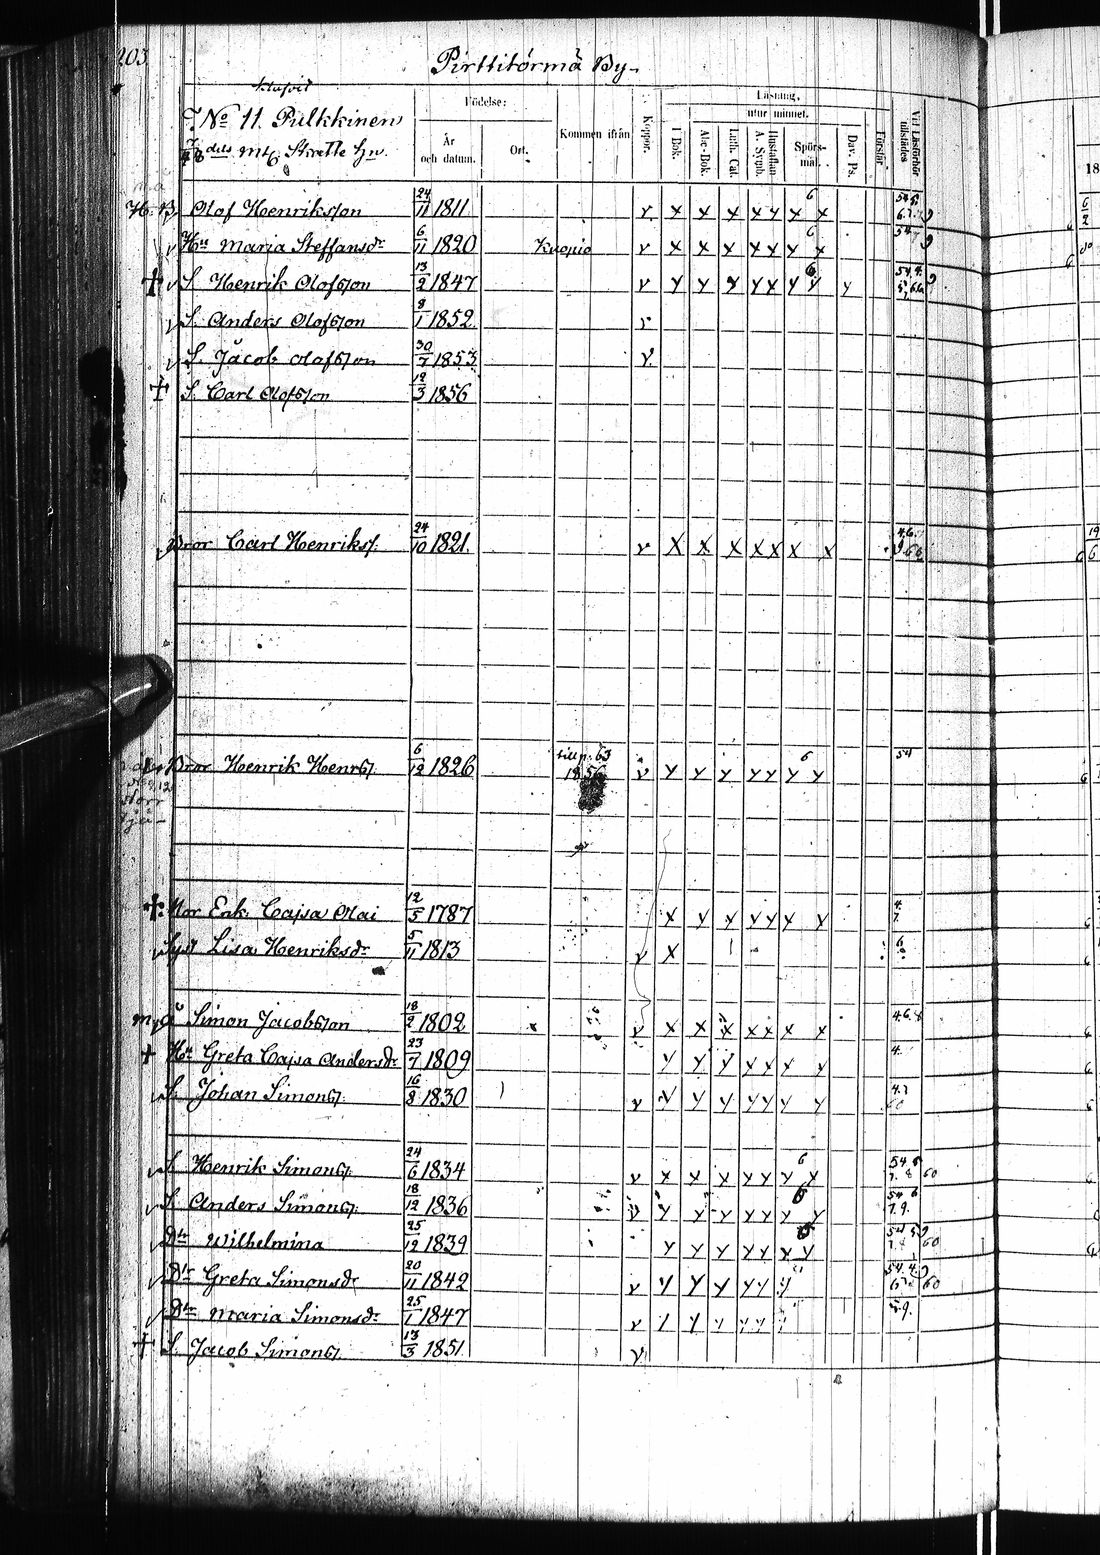 203.
Pirttitörmä By.
No 11. Pulkkinen
dels mtl Skatte Hn.
Födelse:
År och datum.
Ort.
Kommen ifrån
Koppor.
Läsning,
utur minnet.
I Bok.
Abc-Bok.
Luth. Cat.
Hustaflan A. Symb.
Spörs-mål.
Dav. Ps.
Förstår
Vid Läsförhör tillstädes
18
Olof Henriksson 24/11 1811 v x x x x x x x 6
Hu Maria Steffansdr 6/11 1820 Kuopio v x x x x x x x 6 54
S. Henrik Olofsson 13/2 1847 v y y y y y y y y 6
S. Anders Olofsson 8/1 1852 v
S. Jacob Olofsson 30/7 1853 v
S. Carl Olofsson 12/3 1856
Bror Carl Henrikss. 24/10 1821 v x x x x x x x
Bror Henrik Henrss. 6/12 1826 till p. 63 1856 v y y y y y y y 6 54
Mor Enk. Cajsa Olai 12/5 1787 x y x y y x y 4. 7.
Syst Lisa Henriksdr 5/11 1813 v x 6
Simon Jacobsson 18/2 1802 v x x x x x x x 4 6 8
Hu Greta Cajsa Andersdr 23/7 1809 y y y y y y y 4.
S. Johan Simonss. 16/8 1830 v y y y y y y y
S Henrik Simonss. 24/6 1834 v x x x x y y x 6 60
S. Anders Simonss. 18/12 1836 v y y y y y y y 6 7.9.
Dtr Wilhelmina 25/12 1839 y y y y y x y 60
Dtr Greta Simonsdr 20/11 1842 v y y y y y y 60
Dtr Maria Simonsdr 25/1 1847 v y y y y y 59.
S. Jacob Simonss. 13/3 1851 v